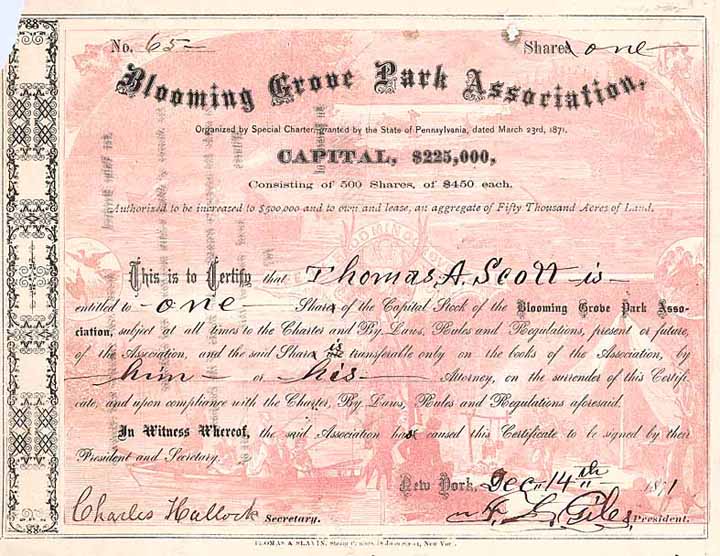 No. 65 Shares one
Blooming Grove Park Association,
Organized by Special Charter, granted by the State of Pennsylvania, dated March 23rd, 1871.
CAPITAL, $225,000,
Consisting of 500 Shares, of $450 each.
Authorized to be increased to $500,000 and to own and lease, an aggregate of Fifty Thousand Acres of Land.
BLOOMING GROVE
This is to Certify that Thomas, A, Scott is
entitled to one Share of the Capital Stock of the Blooming Grove Park Asso-
ciation, subject at all times to the Charter and By Laws, Rules and Regulations, present or future,
of the Association, and the said Share is transferable only on the books of the Association, by
him or his Attorney, on the surrender of this Certifi-
cate, and upon compliance with the Charter, By Laws, Rules and Regulations aforesaid.
In Witness Whereof, the said Association has caused this Certificate to be signed by their
President and Secretary.
New York, Dec 14th 1871
Charles Hallock Secretary. Giles President.
THOMAS & SLAVIN, New York.